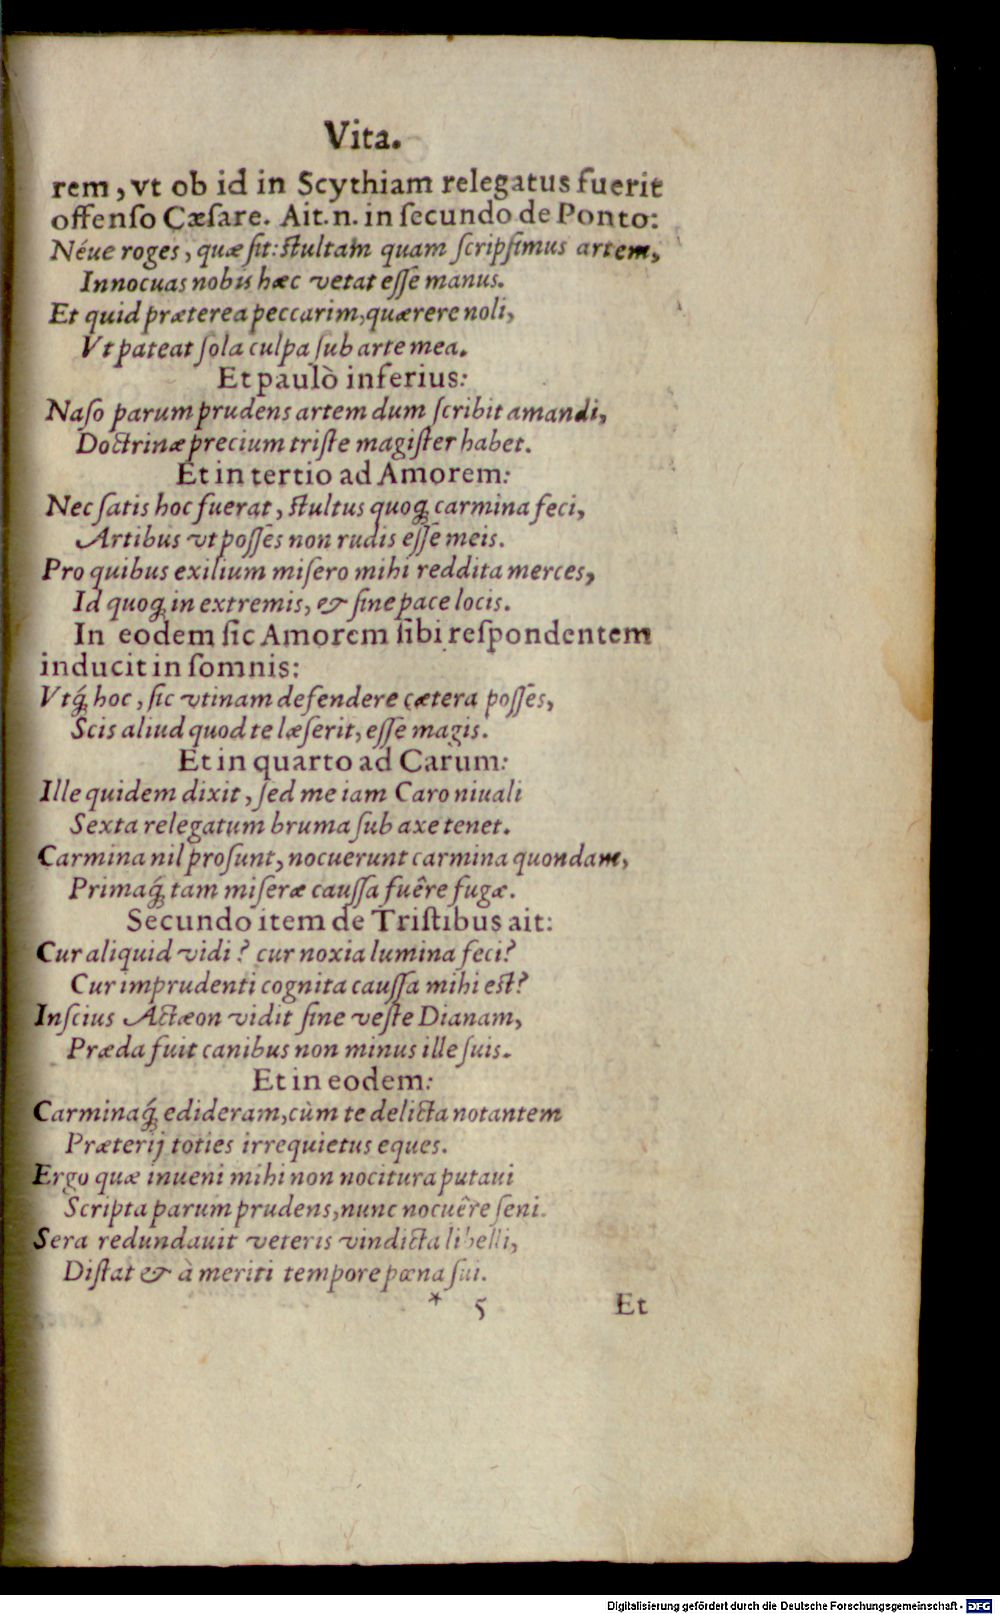 Vita.
rem, vt ob id in Scythiam relegatus fuerit
offenſo Cæſare. Ait.n. in ſecundo de Ponto:
Néue roges, quæ ſit: ſtultam quam ſcripſimus artem,
Innocuas nobis hæc vetat eſſe manus.
Et quid præterea peccarim, quærere noli,
Vt pateat ſola culpa ſub arte mea.
Et paulò inferius:
Naſo parum prudens artem dum ſcribit amandi,
Doctrinæ precium triſte magiſter habet.
Et in tertio ad Amorem:
Nec ſatis hoc fuerat, ſtultus quoq; carmina feci,
Artibus vt poſſes non rudis eſſe meis.
Pro quibus exilium miſero mihi reddita merces,
Id quoq; in extremis, & ſine pace locis.
In eodem ſic Amorem ſibi reſpondentem
inducit in ſomnis:
Vtq́; hoc, ſic vtinam defendere cætera poſſes,
Scis aliud quod te læſerit, eſſe magis.
Et in quarto ad Carum:
Ille quidem dixit, ſed me iam Caro niuali
Sexta relegatum bruma ſub axe tenet.
Carmina nil proſunt, nocuerunt carmina quondam,
Primaq́; tam miſeræ cauſſa fuêre fugæ.
Secundo item de Triſtibus ait:
Cur aliquid vidi? cur noxia lumina feci?
Cur imprudenti cognita cauſſa mihi eſt?
Inſcius Actæon vidit ſine veſte Dianam,
Præda fuit canibus non minus ille ſuis.
Et in eodem:
Carminaq́; edideram, cùm te delicta notantem
Præterij toties irrequietus eques.
Ergo quæ inueni mihi non nocitura putaui
Scripta parum prudens, nunc nocuêre ſeni.
Sera redundauit veteris vindicta libelli,
Diſtat & à meriti tempore pœna ſui.
* 5 Et
Digitalisierung gefördert durch die Deutsche Forschungsgemeinschaft - DFG